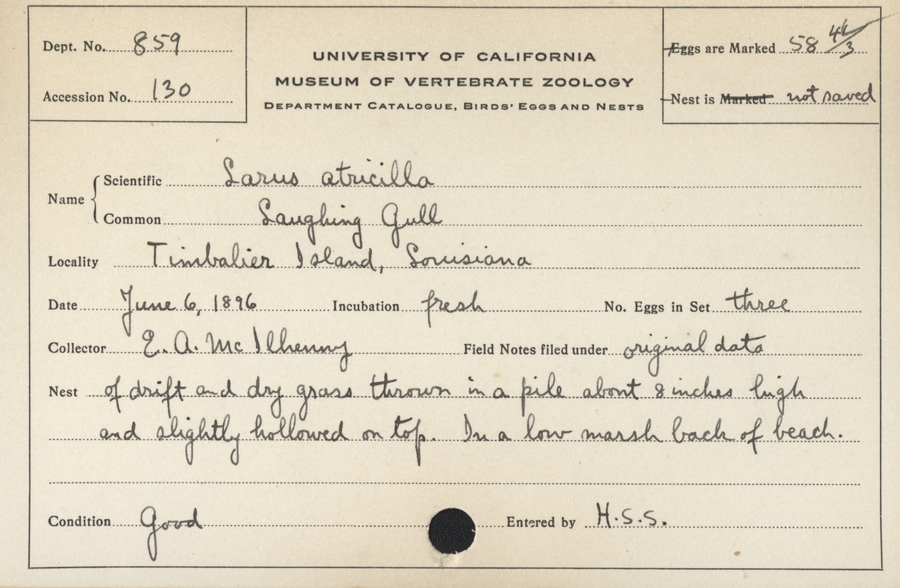 Dept. No. 859
Accession No. 130
UNIVERSITY OF CALIFORNIA
MUSEUM OF VERTEBRATE ZOOLOGY
DEPARTMENT CATALOGUE, BIRDS' EGGS AND NESTS
Eggs are Marked 58 44/3
Nest is Marked not saved
Name { Scientific Larus atricilla
Common Laughing Gull
Locality Timbalier Island, Louisiana
Date June 6, 1896 Incubation fresh No. Eggs in Set three
Collector E. A. McIlhenny Field Notes filed under original data
Nest of drift and dry grass thrown in a pile about 8 inches high
and slightly hollowed on top. In a low marsh back of beach.
Condition Good Entered by H.S.S.